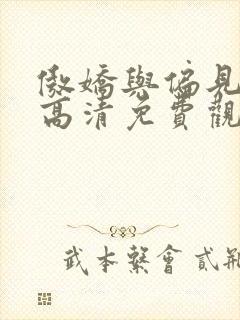 傲嬌與偏見
高清免費觀
武本繫會貳荊